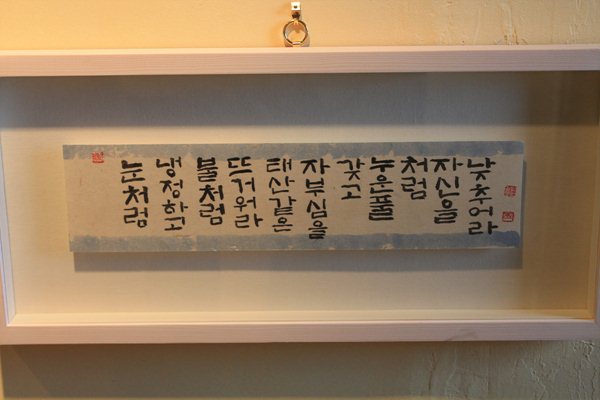 눈처럼
냉정하고
불처럼
뜨거워라
태산같은
자부심을
갖고
누운풀
처럼
자신을
낮추어라